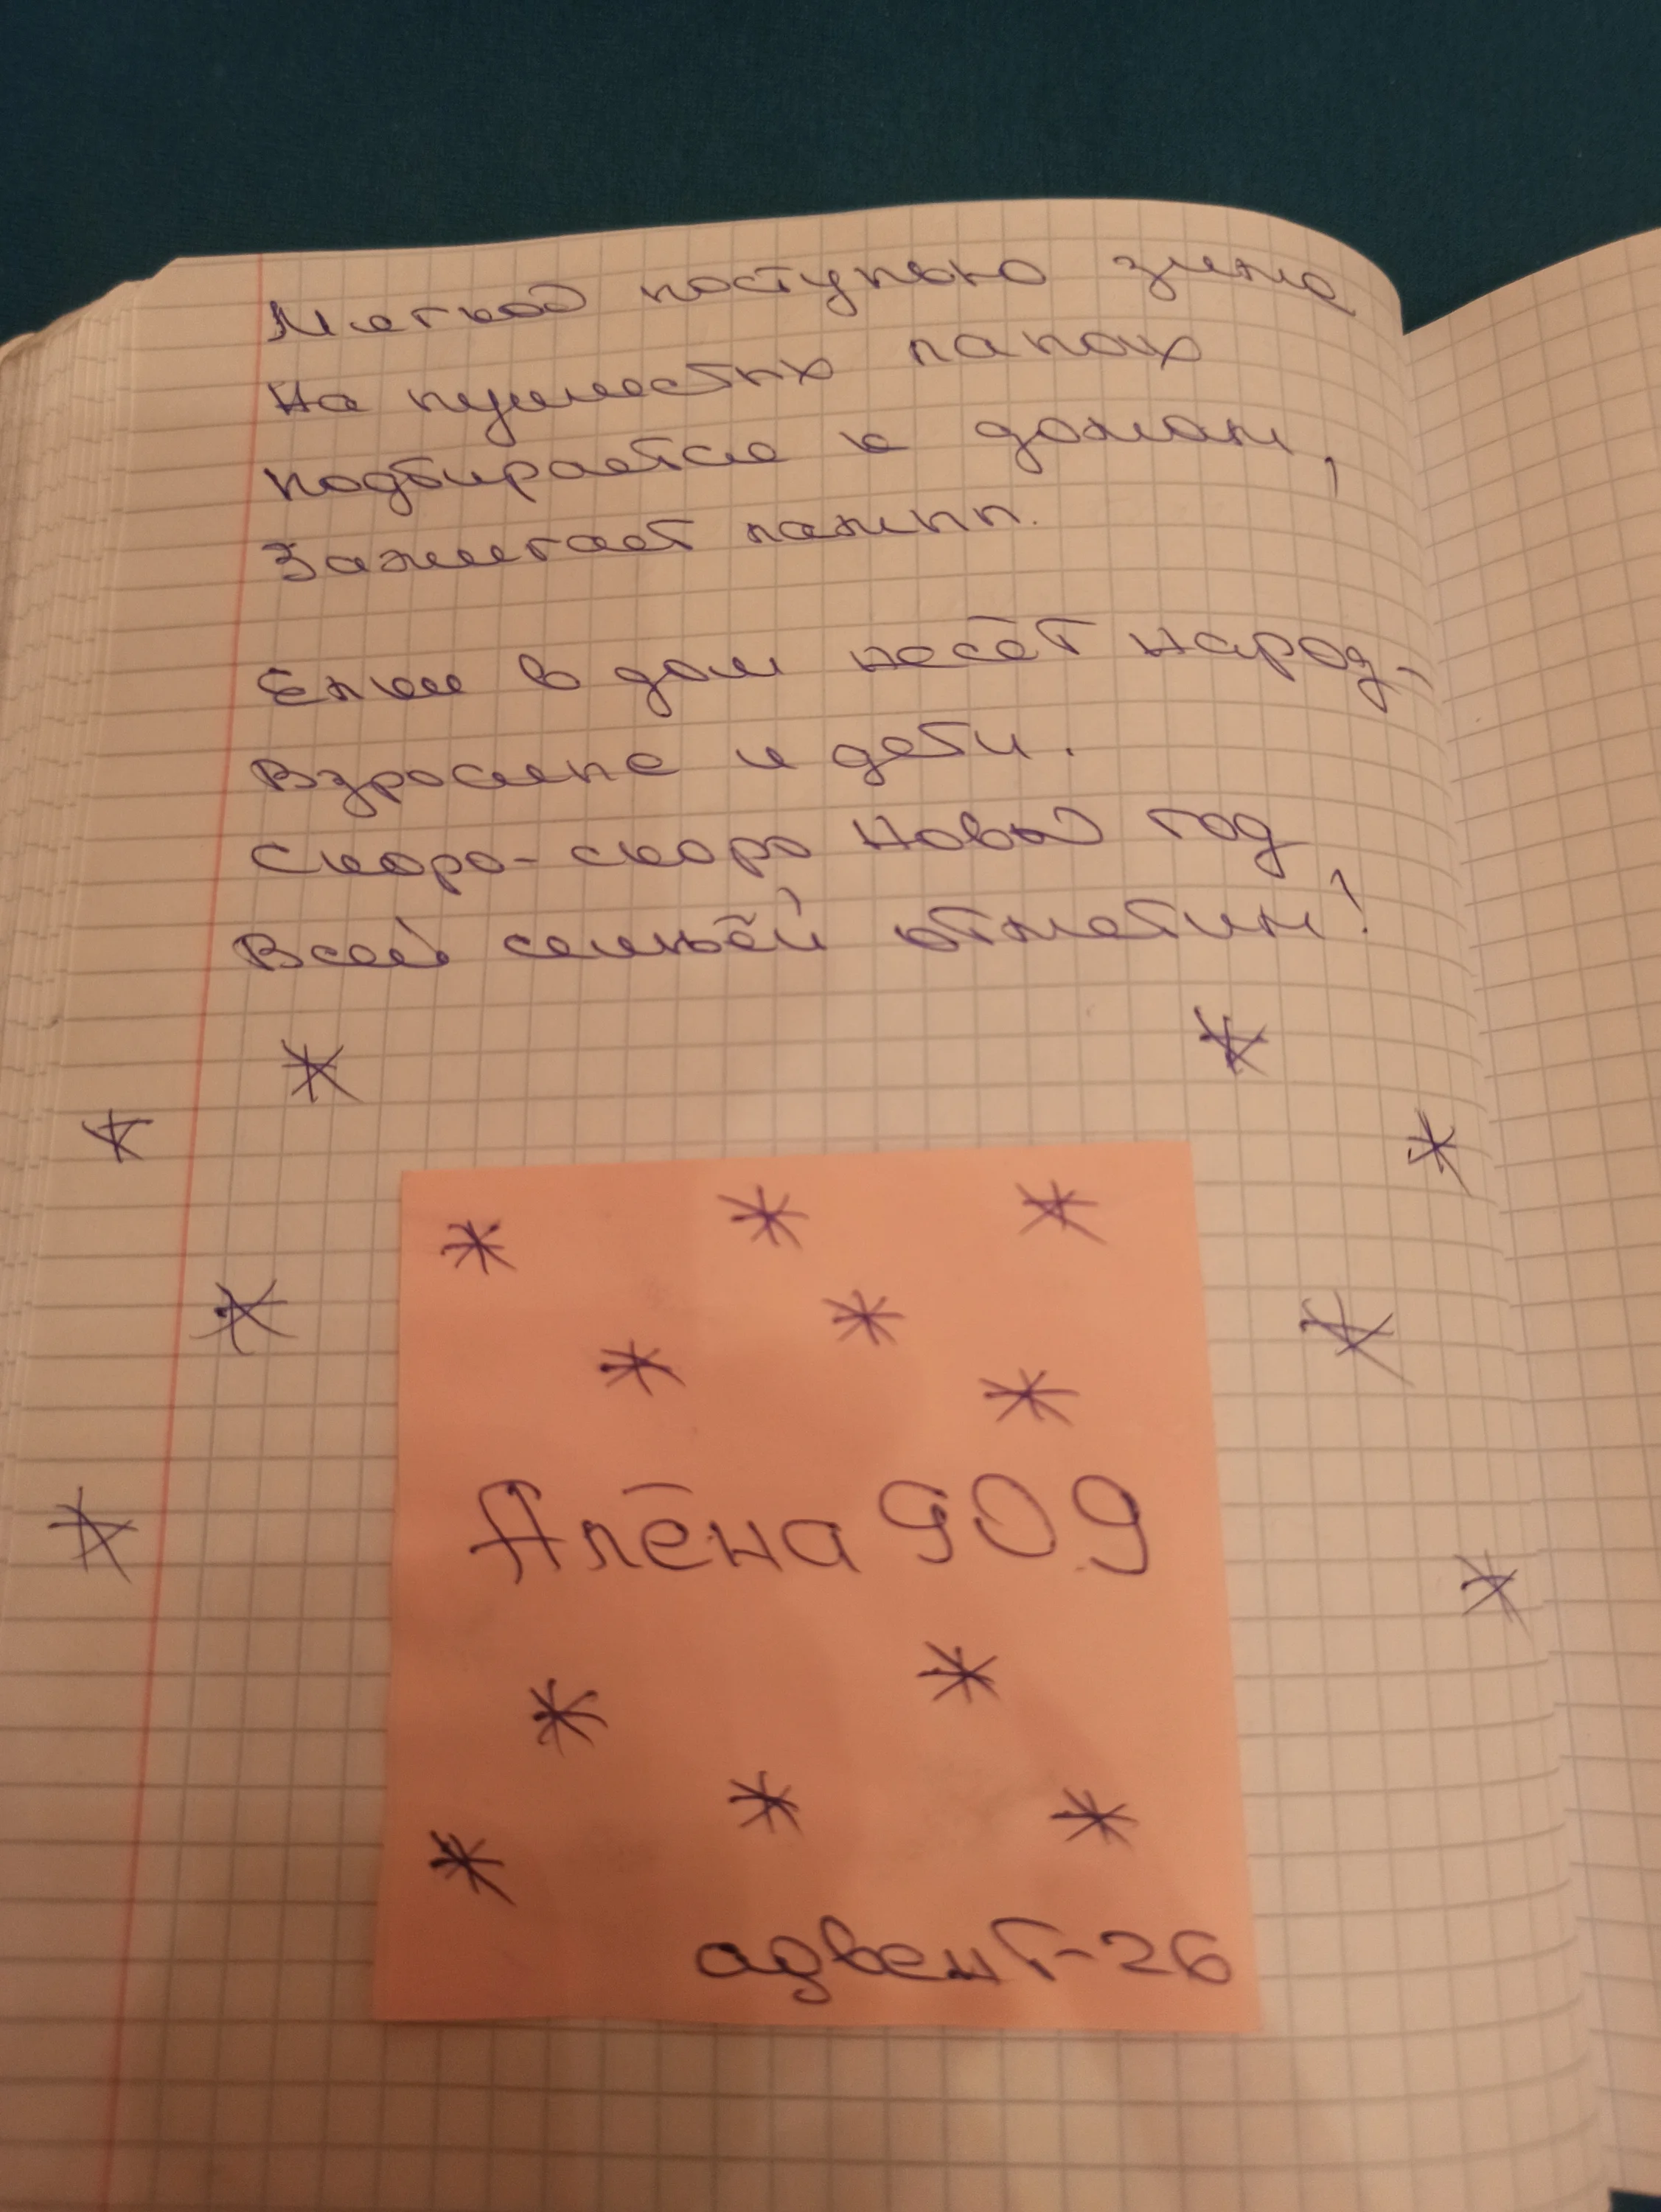 Мягкой поступью зима
На пушистых лапах
Подбирается к домам,
Зажигает лампы.
Елки в дом несёт народ-
Взрослые и дети.
Скоро-скоро Новый год
Всей семьёй отметим!
Алёна909
адвент-26